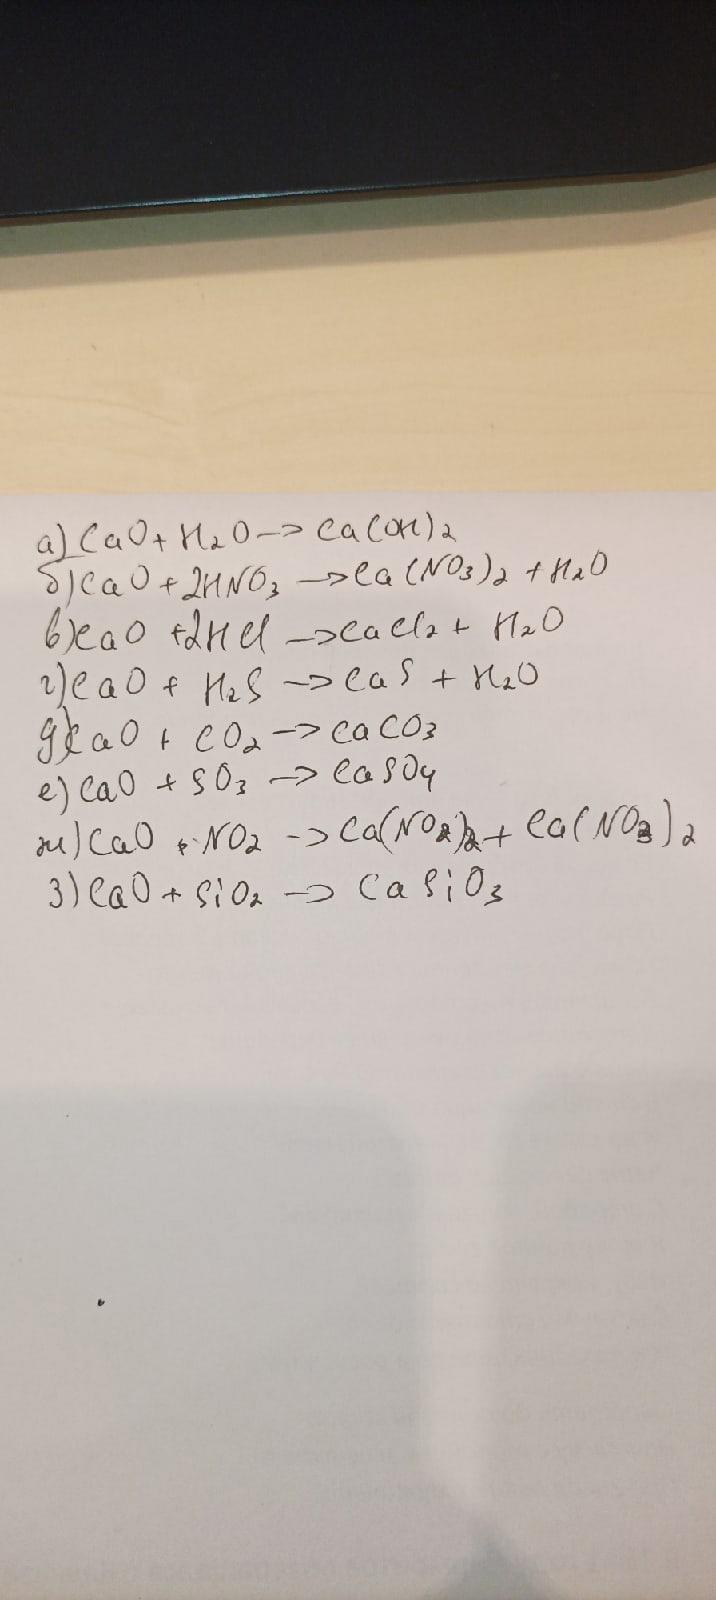 а) CaO + H₂O → Ca(OH)₂
б) CaO + 2HNO₃ → Ca(NO₃)₂ + H₂O
в) CaO + 2HCl → CaCl₂ + H₂O
г) CaO + H₂S → CaS + H₂O
д) CaO + CO₂ → CaCO₃
е) CaO + SO₃ → CaSO₄
ж) CaO + NO₂ → Ca(NO₂)₂ + Ca(NO₃)₂
з) CaO + SiO₂ → CaSiO₃